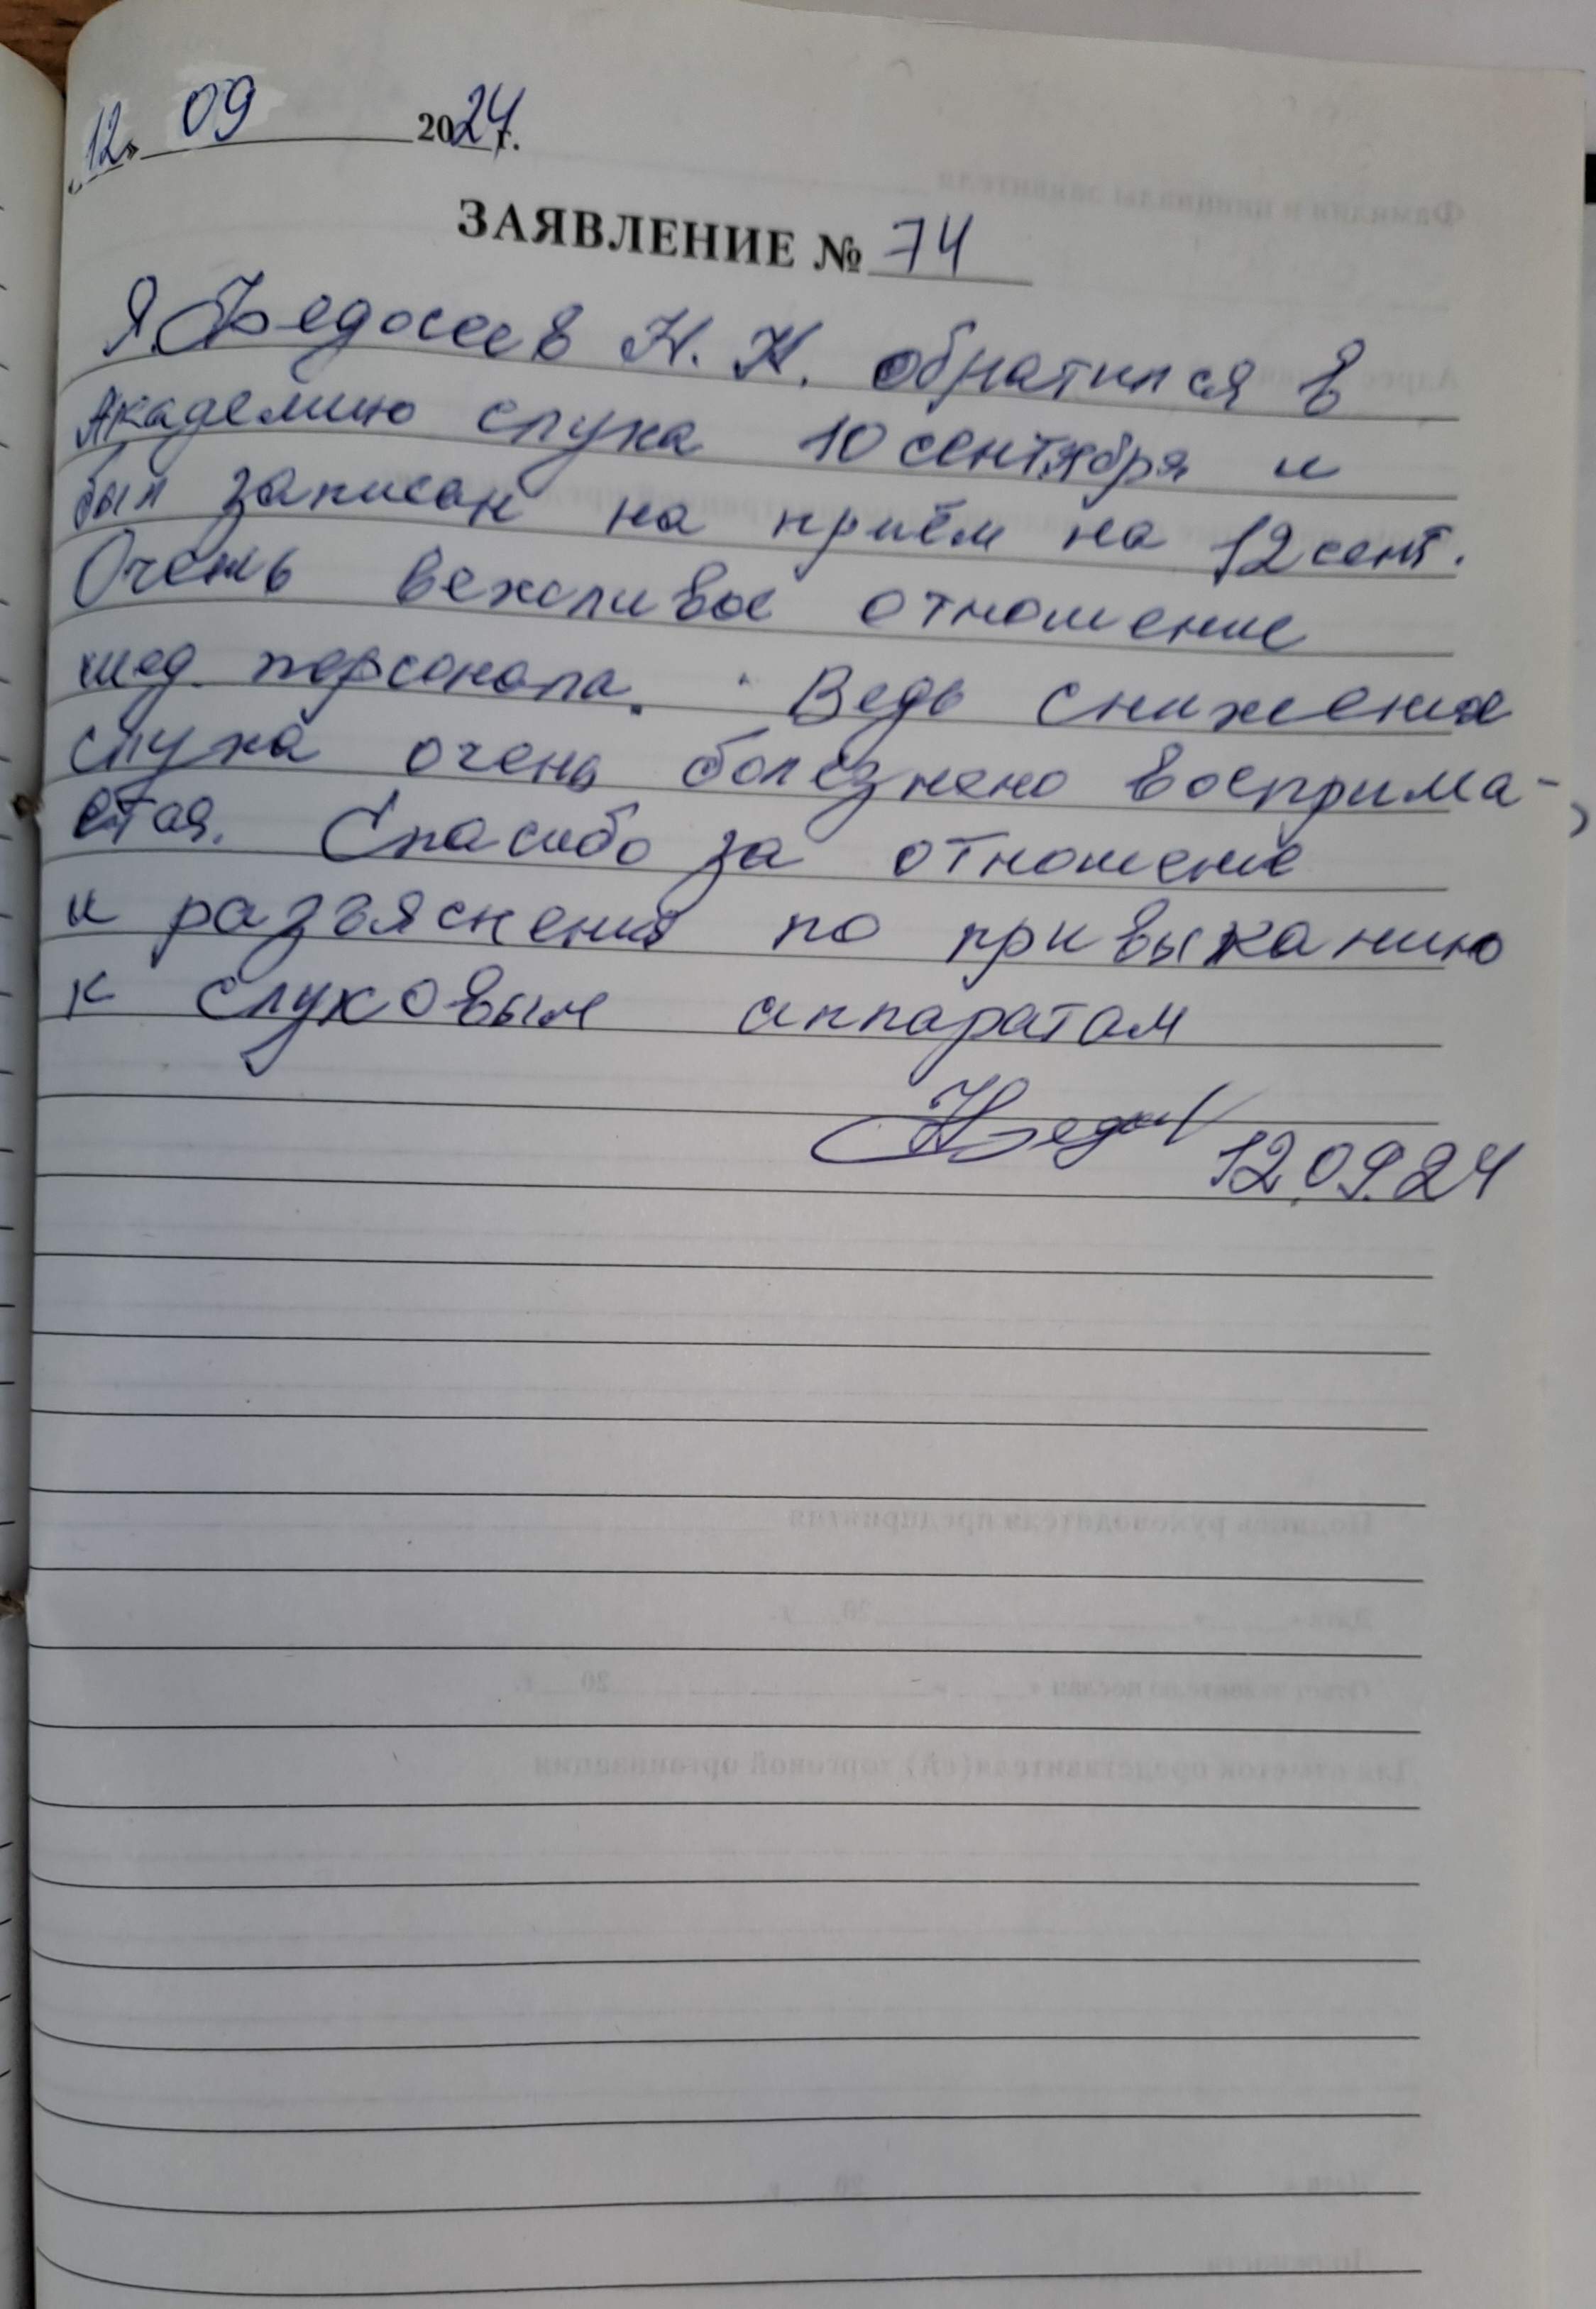 «12» 09 2024 г.
ЗАЯВЛЕНИЕ № 74
Я Федосеев Н. Н. обратился в
Академию слуха 10 сентября и
был записан на приём на 12 сент.
Очень вежливое отношение
мед. персонала. Ведь снижение
слуха очень болезнено восприма-
ется. Спасибо за отношение
и разъяснения по привыканию
к слуховым аппаратам
12.09.24